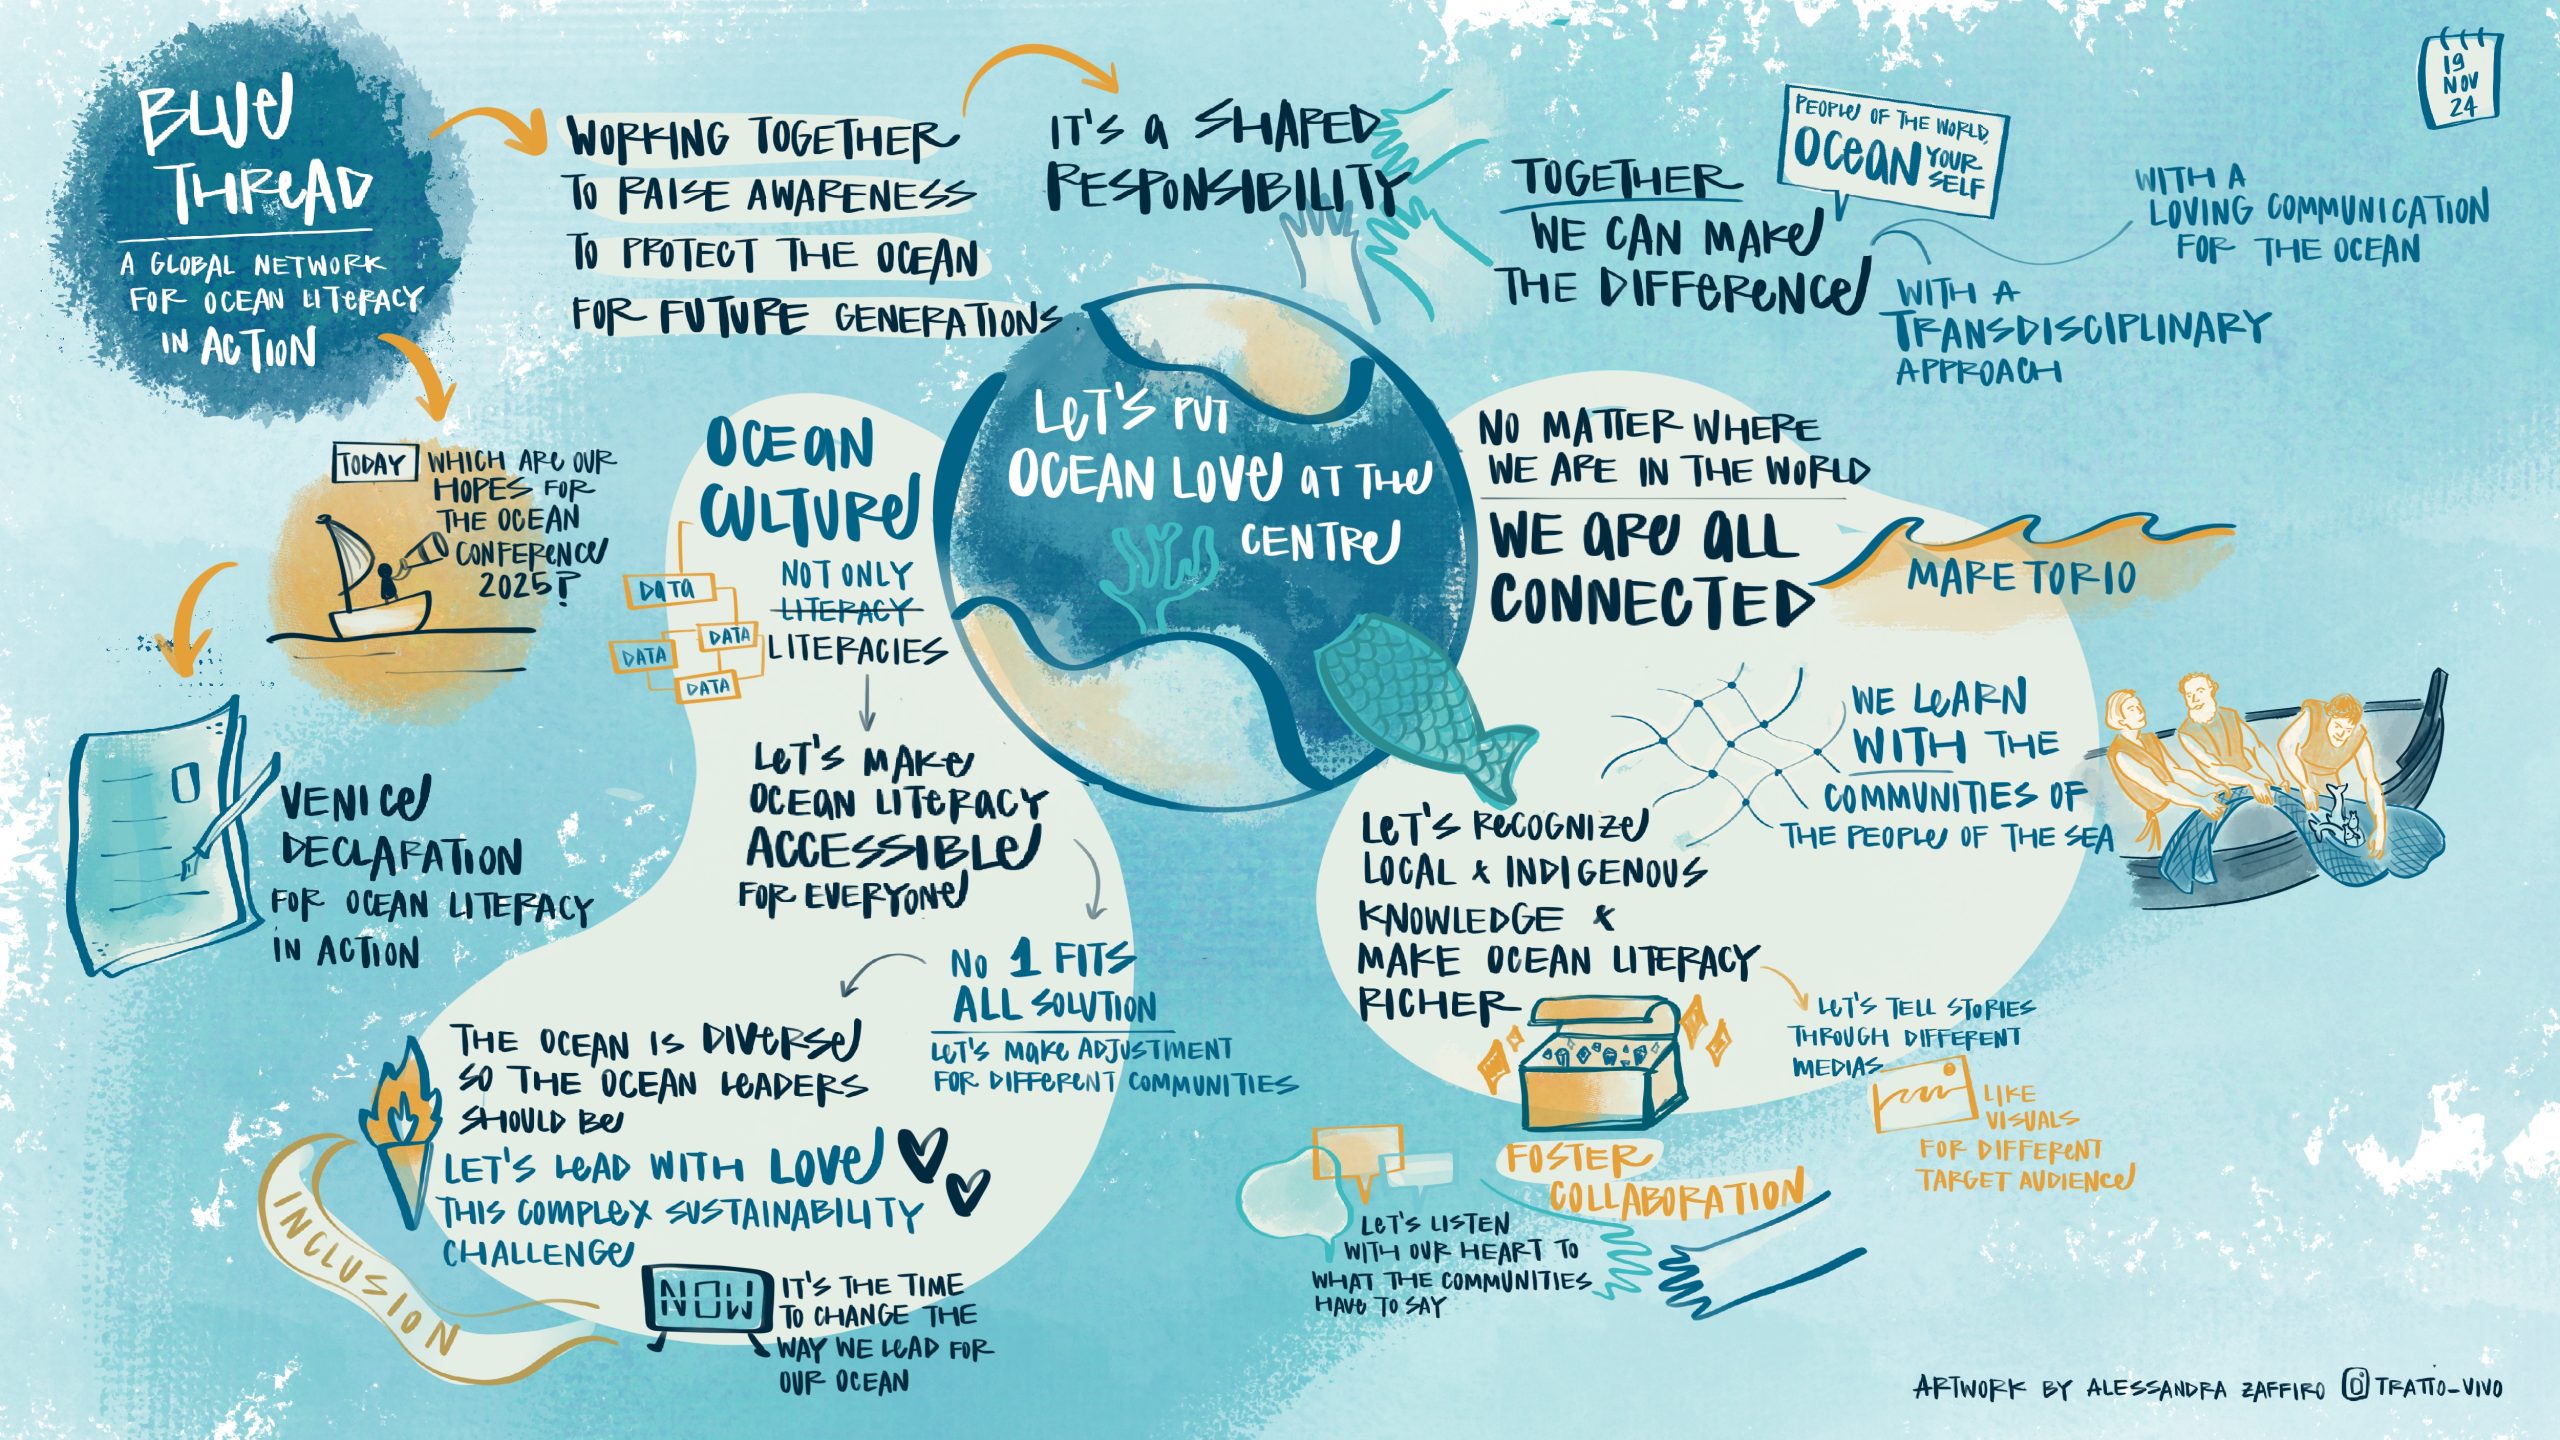 BLUE
THREAD
A GLOBAL NETWORK
FOR OCEAN LITERACY
IN ACTION
WORKING TOGETHER
TO RAISE AWARENESS
TO PROTECT THE OCEAN
FOR FUTURE GENERATIONS
IT'S A SHARED
RESPONSIBILITY
TOGETHER
WE CAN MAKE
THE DIFFERENCE
PEOPLE OF THE WORLD,
OCEAN YOUR
SELF
WITH A
LOVING COMMUNICATION
FOR THE OCEAN
WITH A
TRANSDISCIPLINARY
APPROACH
19
NOV
24
TODAY
WHICH ARE OUR
HOPES FOR
THE OCEAN
CONFERENCE
2025?
VENICE
DECLARATION
FOR OCEAN LITERACY
IN ACTION
LET'S PUT
OCEAN LOVE AT THE
CENTRE
OCEAN
CULTURE
NOT ONLY
LITERACY
LITERACIES
DATA
DATA
DATA
DATA
LET'S MAKE
OCEAN LITERACY
ACCESSIBLE
FOR EVERYONE
NO 1 FITS
ALL SOLUTION
LET'S MAKE ADJUSTMENT
FOR DIFFERENT COMMUNITIES
THE OCEAN IS DIVERSE
SO THE OCEAN LEADERS
SHOULD BE
LET'S LEAD WITH LOVE
THIS COMPLEX SUSTAINABILITY
CHALLENGE
INCLUSION
NOW
IT'S THE TIME
TO CHANGE THE
WAY WE LEAD FOR
OUR OCEAN
NO MATTER WHERE
WE ARE IN THE WORLD
WE ARE ALL
CONNECTED
MARETORIO
WE LEARN
WITH THE
COMMUNITIES OF
THE PEOPLE OF THE SEA
LET'S RECOGNIZE
LOCAL & INDIGENOUS
KNOWLEDGE &
MAKE OCEAN LITERACY
RICHER
LET'S TELL STORIES
THROUGH DIFFERENT
MEDIAS
LIKE
VISUALS
FOR DIFFERENT
TARGET AUDIENCE
FOSTER
COLLABORATION
LET'S LISTEN
WITH OUR HEART TO
WHAT THE COMMUNITIES
HAVE TO SAY
ARTWORK BY ALESSANDRA ZAFFIRO TRATTO_VIVO